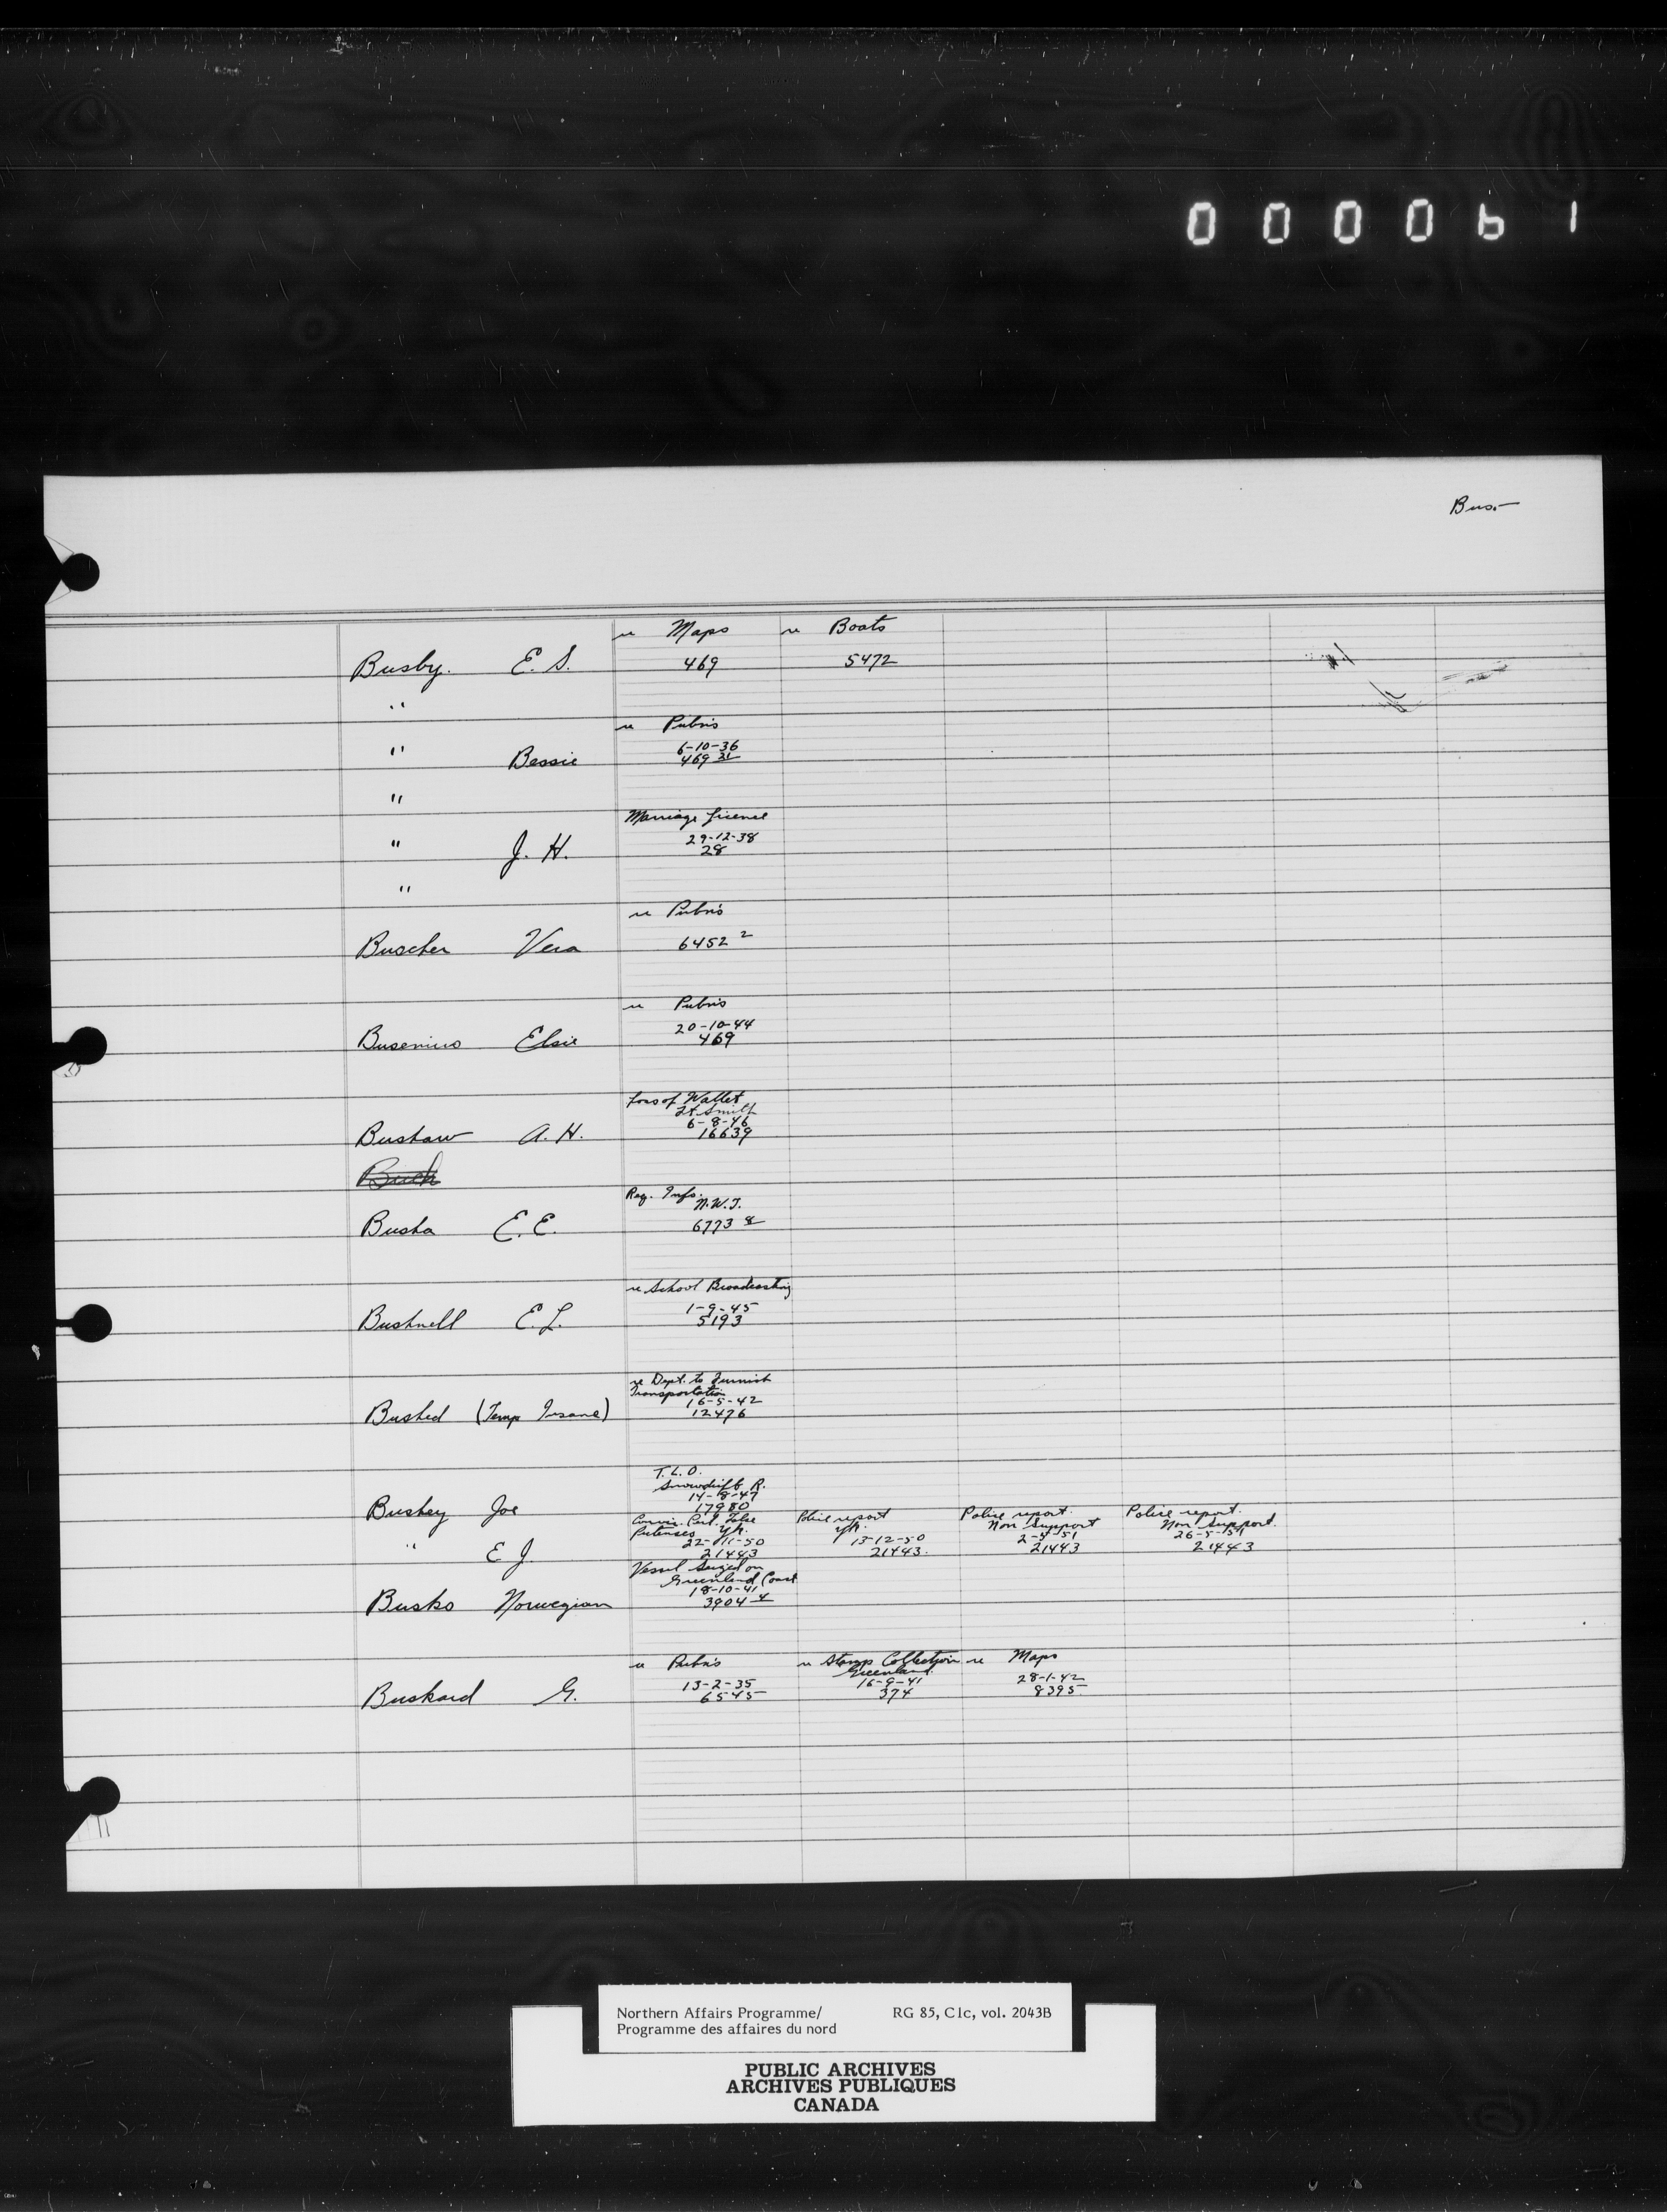 000061
Bus-
re Maps re Boats
Busby. E. S. 469 5472
"
re Pub'ns
6-10-36
" Bessie 469 21
"
Marriage License
29-12-38
" J. H. 28
"
re Pub'ns
Buscher Vera 6452 2
re Pub'ns
20-10-44
Busenius Elsie 469
Loss of Wallet
Ft. Smith
6-8-46
Bushaw A. H. 16639
Buch
Req. Info.
N.W.T.
Busha E. E. 6773 8
re School Broadcasting
1-9-45
Bushnell E. L. 5193
re Dept. to Furnish
Transportation
16-5-42
Bushed (Temp Insane) 12476
T. L. O.
Snowdrift R.
14-8-47
Bushey Joe 17980
Convic. False Police report Police report. Police report.
Pretenses Yk. Yk. Non Support Non Support.
22-11-50 13-12-50 2-4-51 26-5-51
" E J. 21443 21443. 21443 21443
Vessel Seized on
Greenland Coast
18-10-41
Busko Norwegian 3904 4
re Pub'ns re Stamp Collection re Maps
Greenland.
13-2-35 16-9-41 28-1-42
Buskard G. 6545 374 8395
Northern Affairs Programme/ RG 85, C1c, vol. 2043B
Programme des affaires du nord
PUBLIC ARCHIVES
ARCHIVES PUBLIQUES
CANADA